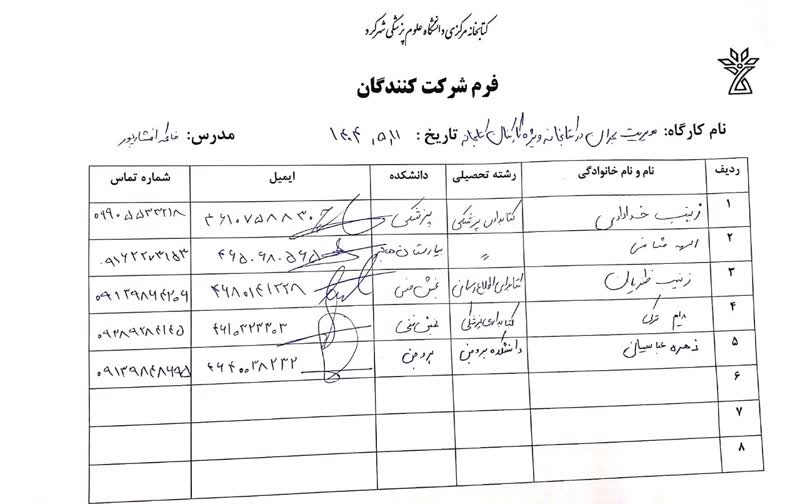 کتابخانه مرکزی دانشگاه علوم پزشکی شهرکرد
فرم شرکت کنندگان
نام کارگاه: مدیریت بحران در کتابخانه ویژه کارکنان کتابخانه تاریخ: ۱۴۰۴/۵/۱۱ مدرس: فاطمه افشارپور
ردیف نام و نام خانوادگی رشته تحصیلی دانشکده ایمیل شماره تماس
۱ زینب خدادادی کتابداری پزشکی پزشکی ۴۶۱۰۷۵۸۸۳۰ ۰۹۹۰۵۵۳۳۲۱۸
۲ الهه " بیمارستان هاجر ۴۶۵۰۶۸۰۵۶۵ ۰۹۱۶۲۲۷۳۱۵۳
۳ زینب کتابداری اطلاع رسانی بخش فنی ۴۶۸۰۱۴۱۲۲۸ ۰۹۱۳۹۸۶۴۲۰۹
۴ مریم ترکی کتابداری پزشکی بخش فنی ۴۶۱۰۳۲۳۳۰۳ ۰۹۳۸۹۲۸۴۱۴۵
۵ زهره عباسیان دانشکده بروجن بروجن ۴۶۴۰۰۳۸۲۳۲ ۰۹۱۳۹۸۴۸۶۹۵
۶
۷
۸